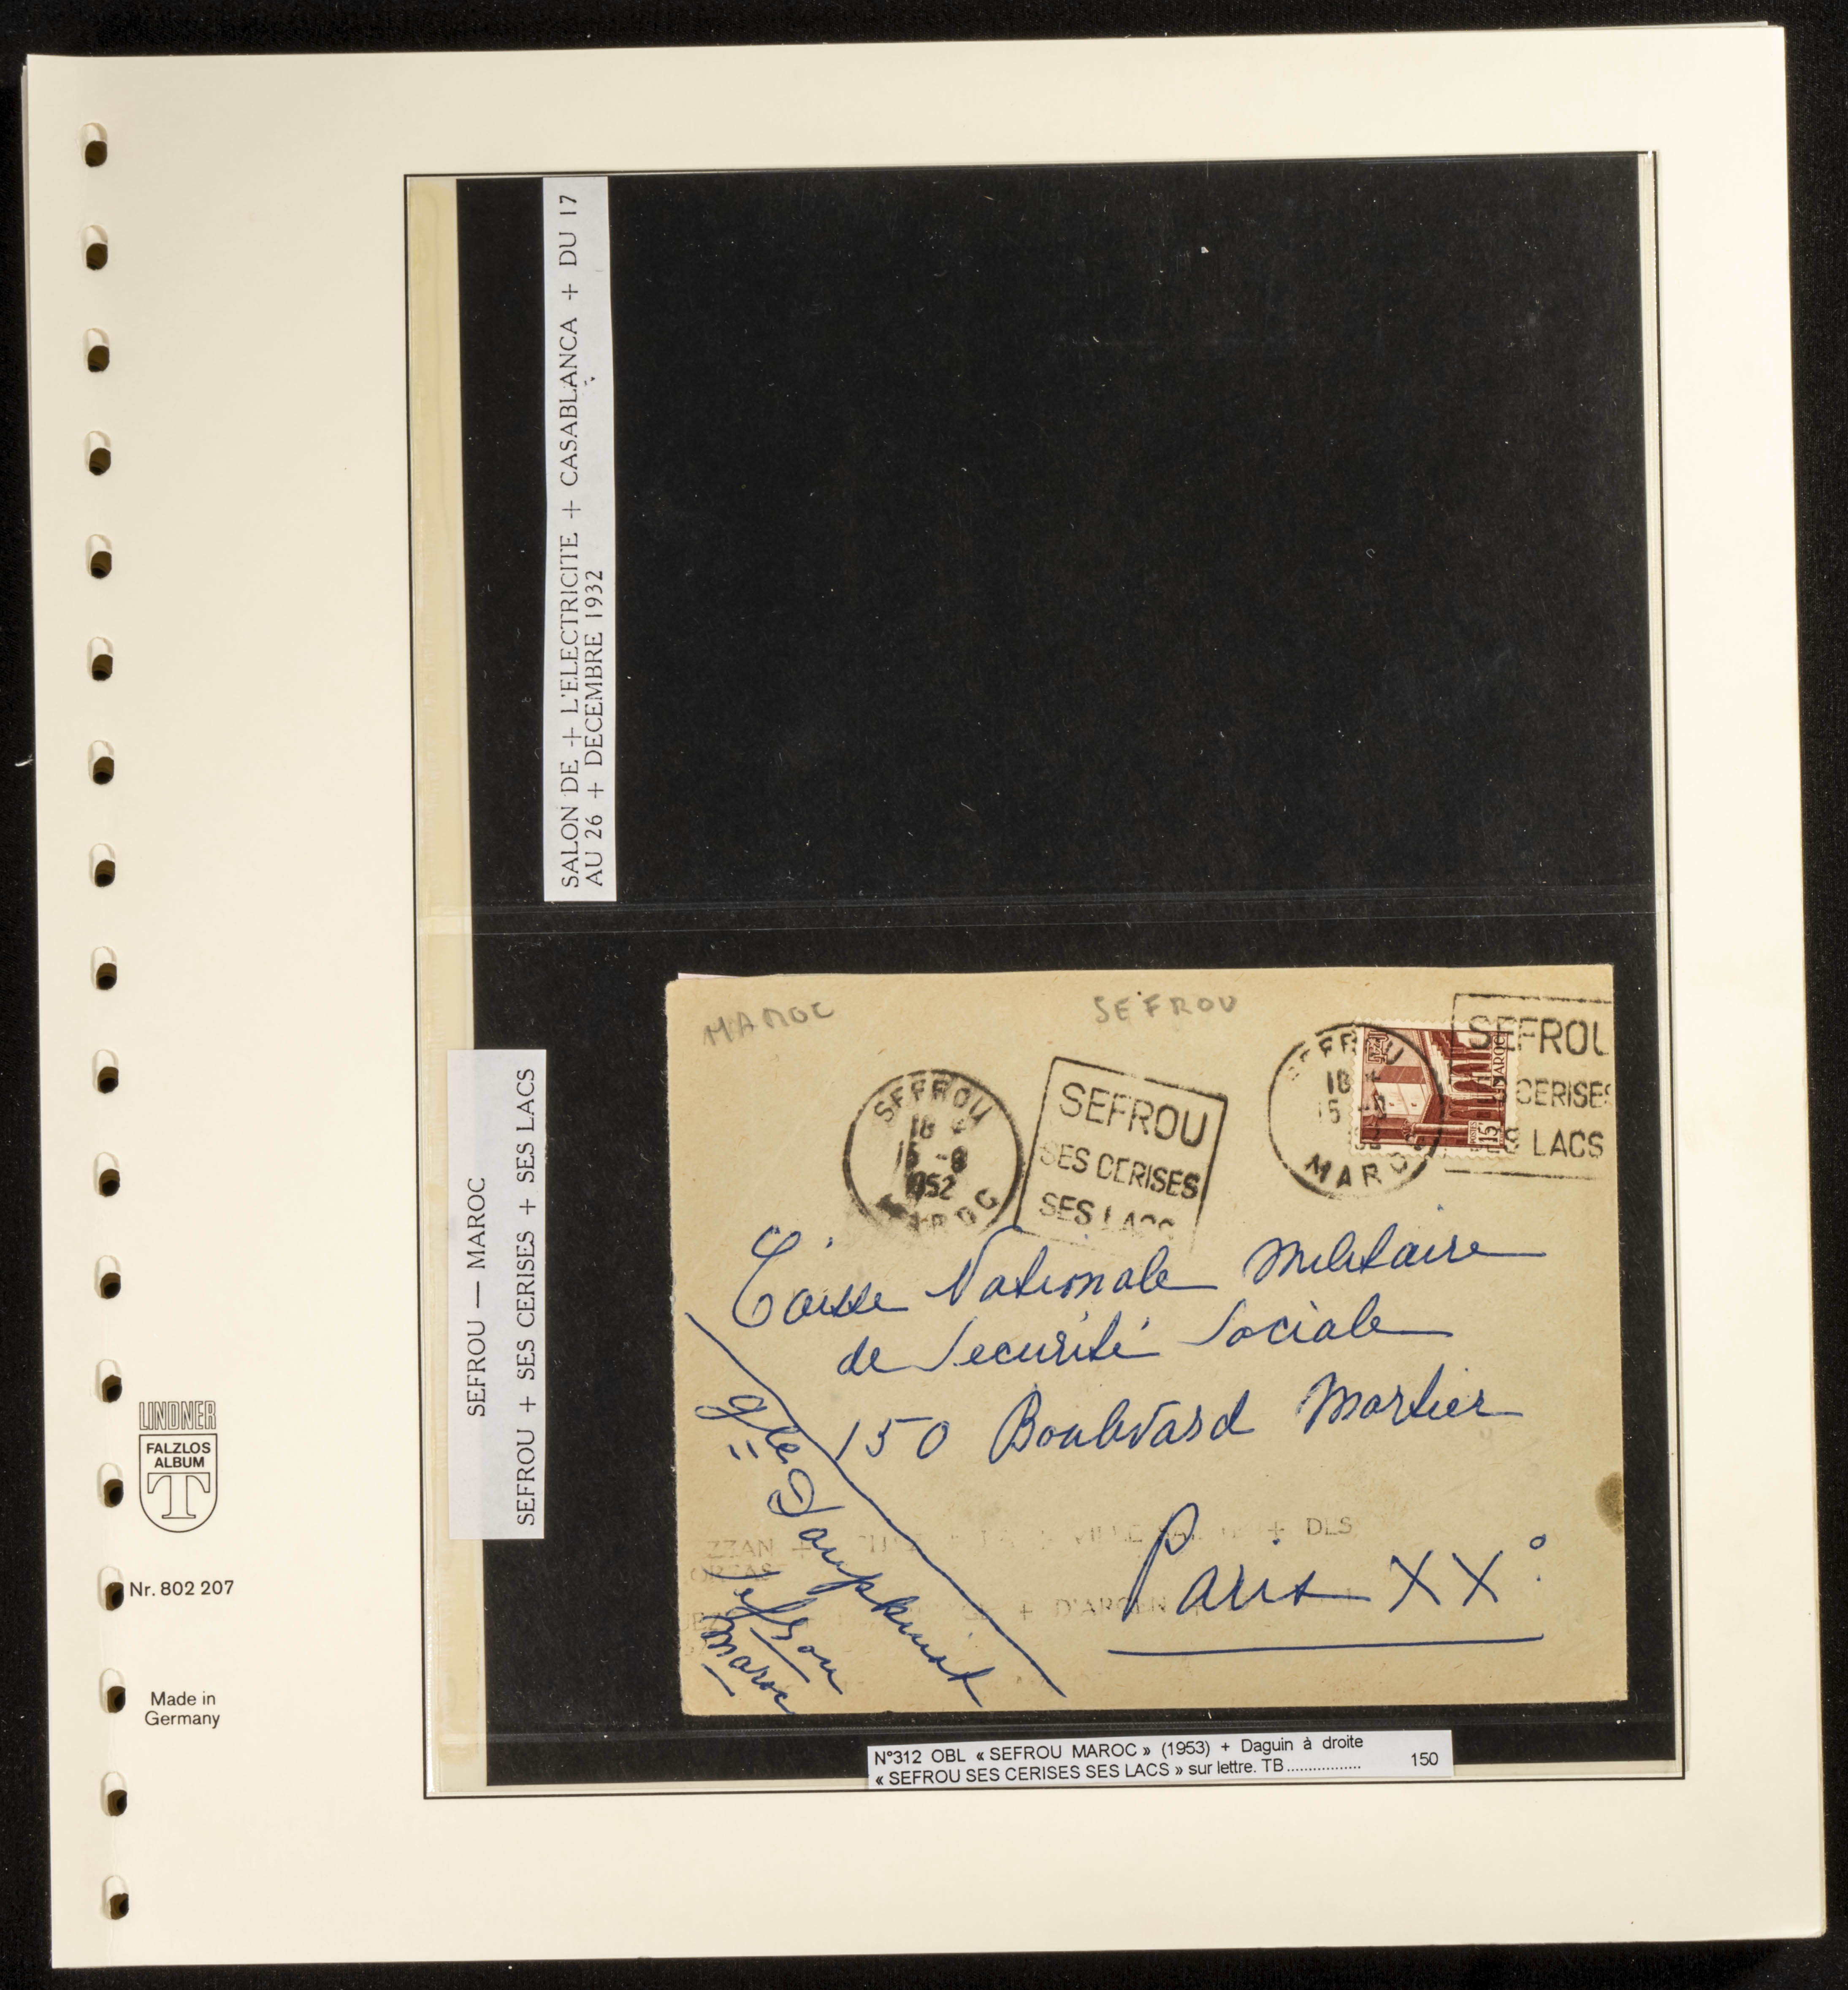 SALON DE + L'ELECTRICITE + CASABLANCA + DU 17
AU 26 + DECEMBRE 1932
SEFROU — MAROC
SEFROU + SES CERISES + SES LACS
MAROC
SEFROU
SEFROU
18
15 -8
1952
MAROC
SEFROU
SES CERISES
SES LACS
SEFROU
18
15
MAROC
MAROC
POSTES
15F
SEFROU
CERISES
LACS
Caisse Nationale Militaire
de Securité Sociale
150 Boulevard Mortier
Paris XX°
gle
Sefrou
Maroc
ZZAN +
VILLE + DES
+ D'ARGEN
LINDNER
FALZLOS
ALBUM
T
Nr. 802 207
Made in
Germany
N°312 OBL « SEFROU MAROC » (1953) + Daguin à droite
« SEFROU SES CERISES SES LACS » sur lettre. TB................. 150